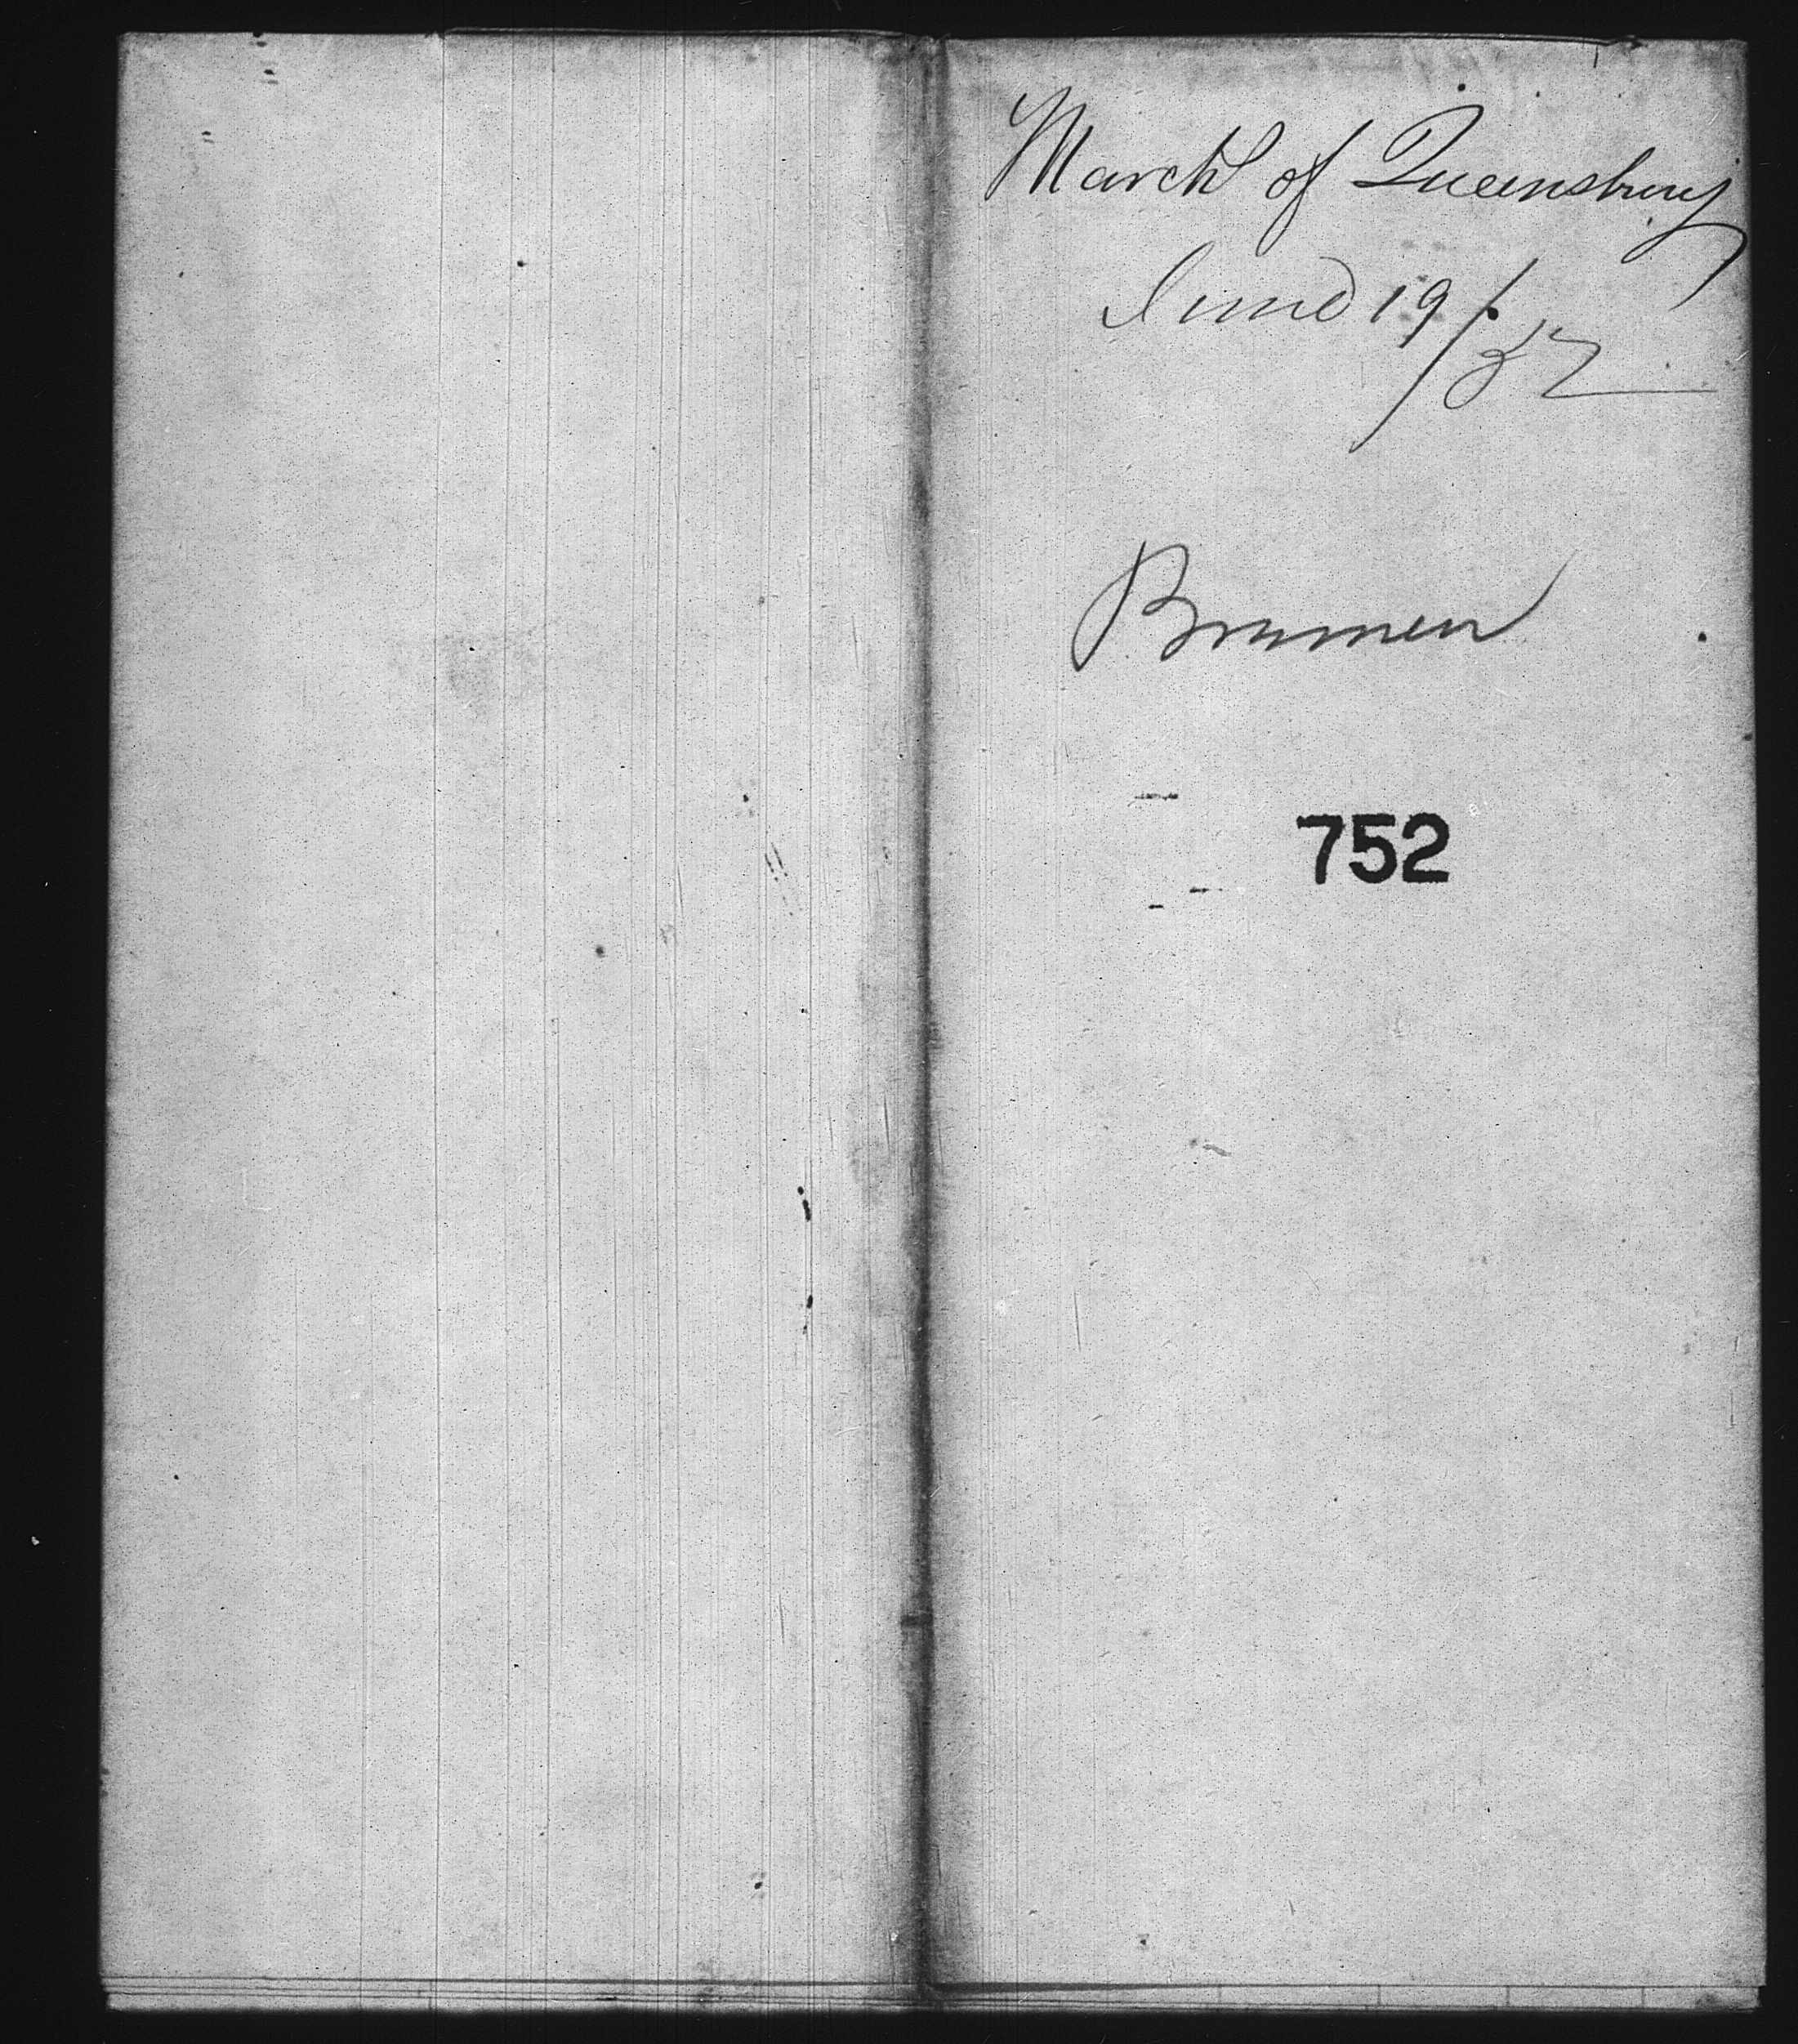 March of Queensbury
June 19/52
Brumen
752